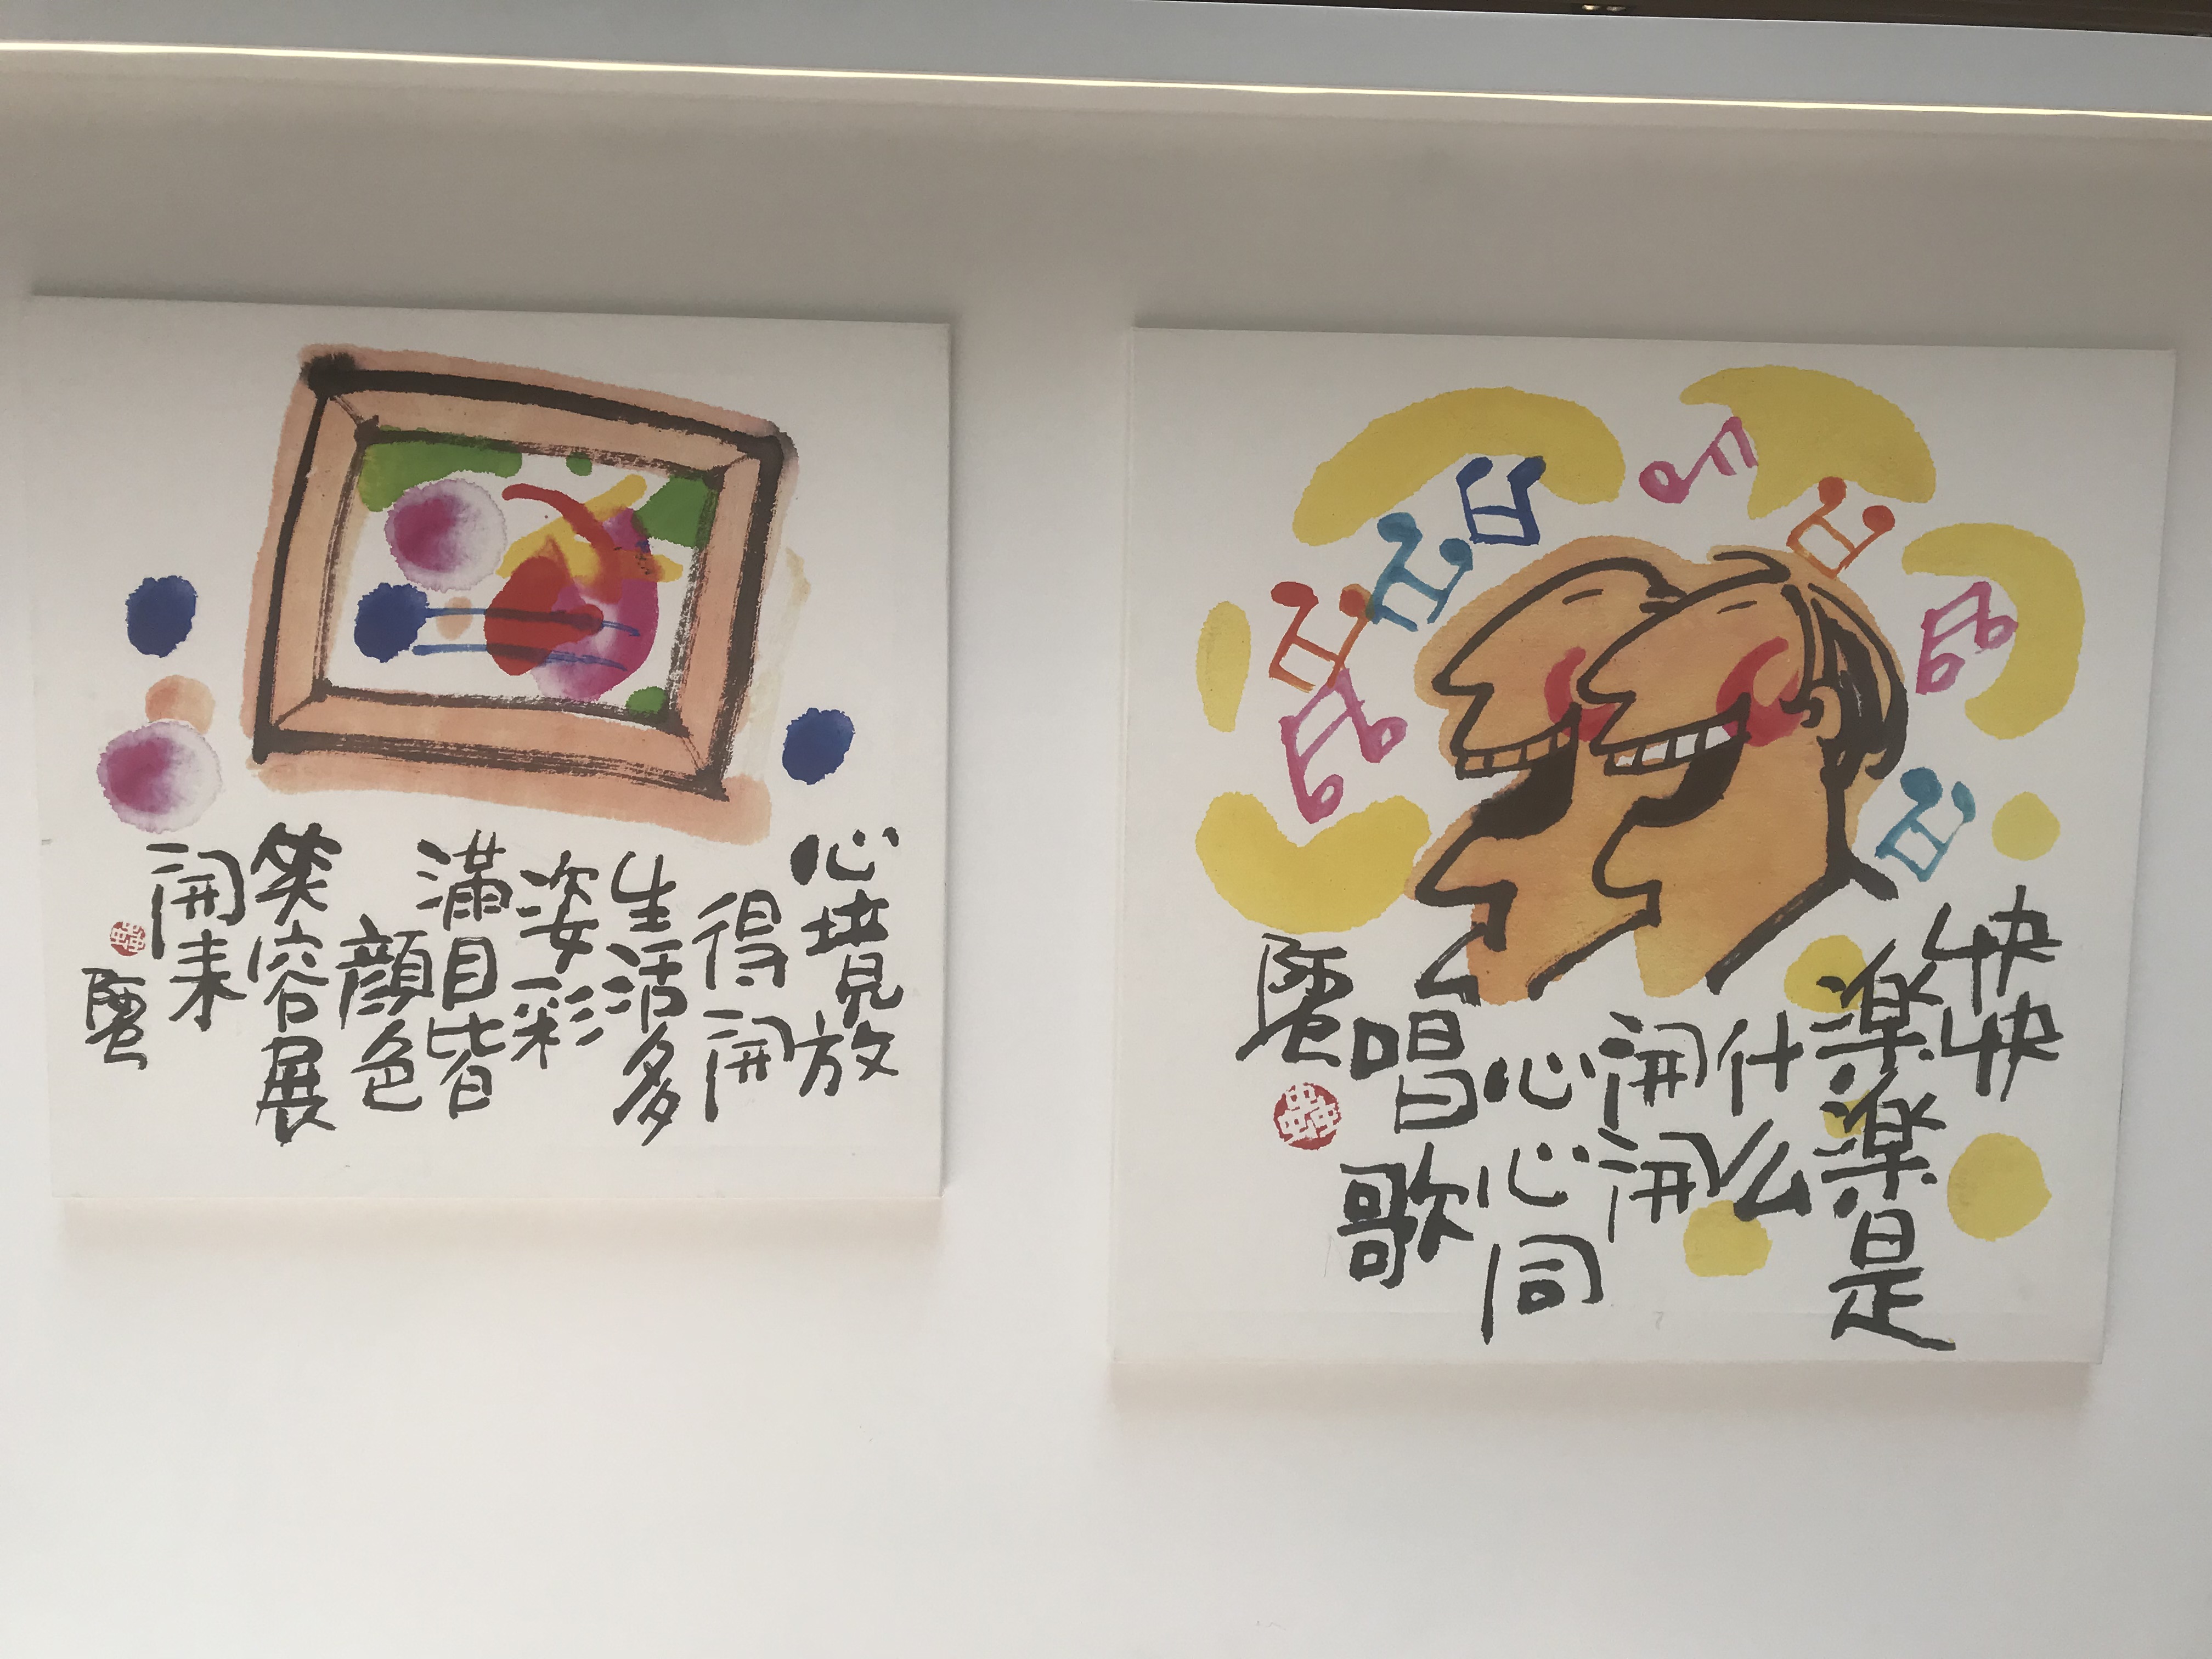 心境放
得開
生活多
姿彩
滿目皆
顔色
笑容展
開来
快快
楽楽是
什么
開開
心心同
唱歌